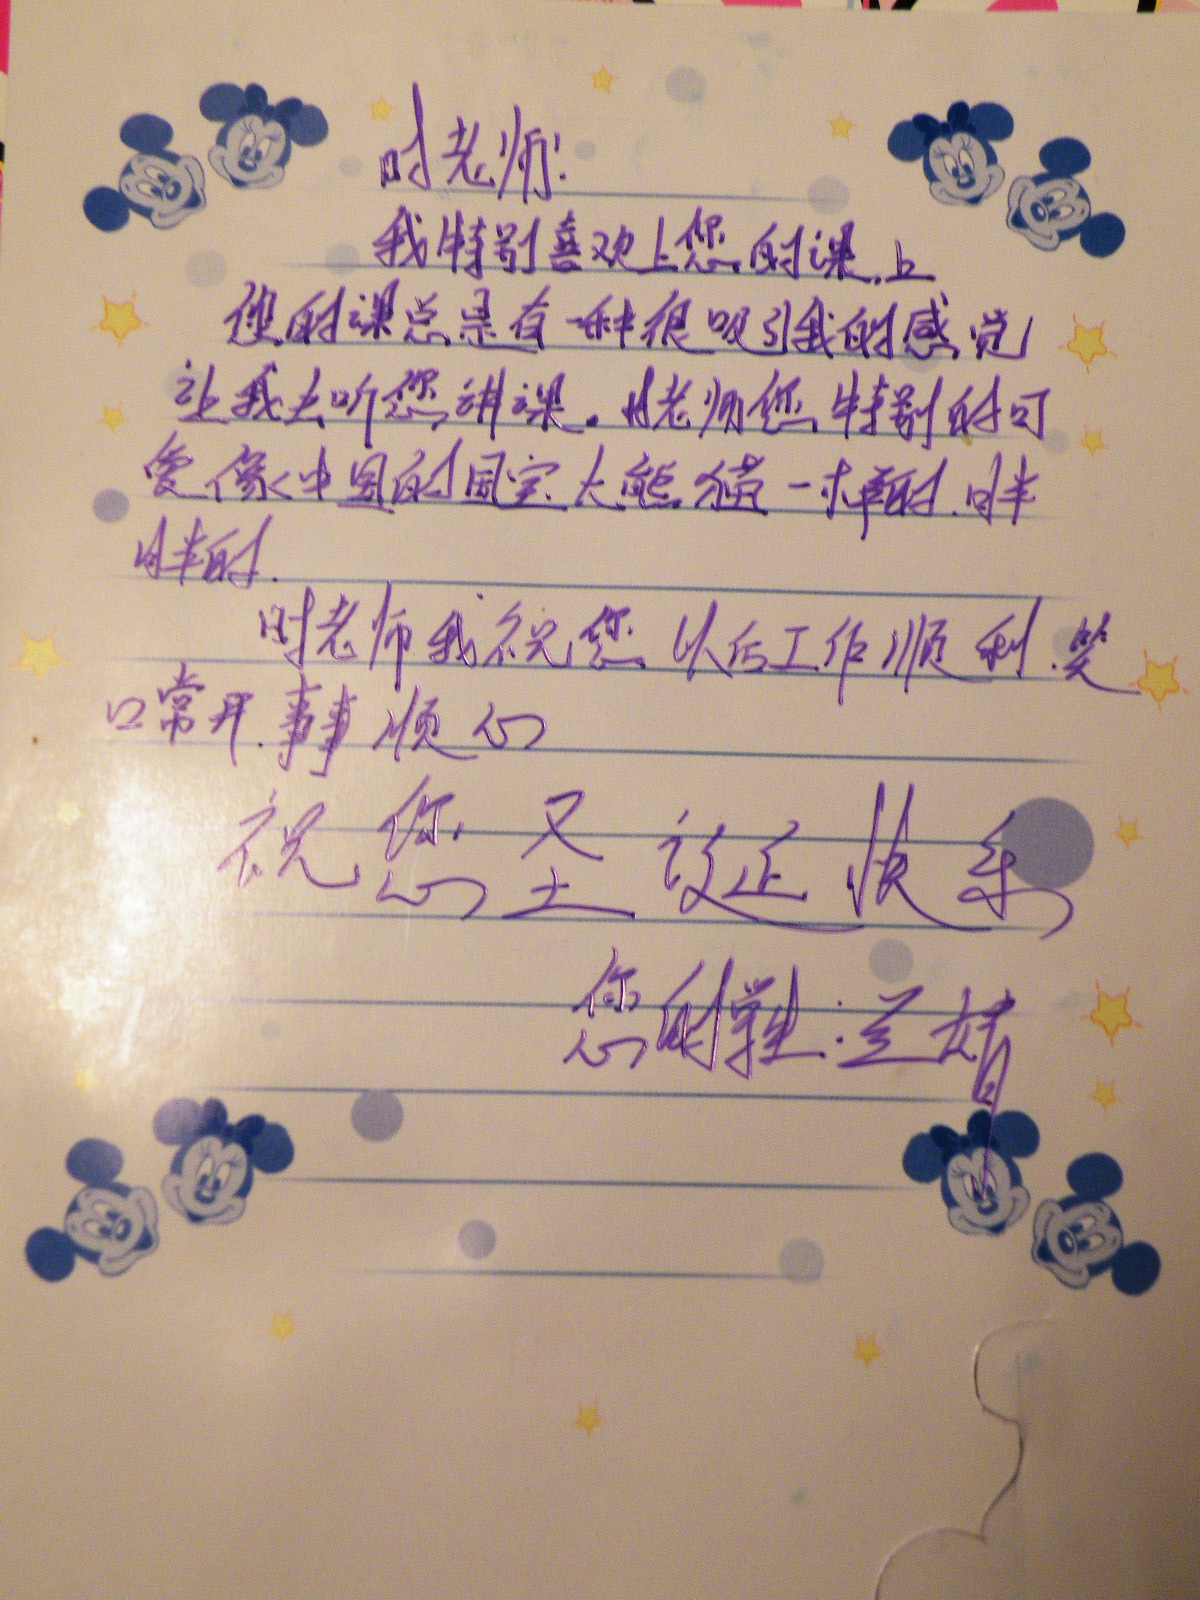 时老师:
我特别喜欢上您的课.上
您的课总是有一种很吸引我的感觉
让我去听您讲课。时老师您特别的可
爱像中国的国宝大熊猫一样的.胖
胖的.
时老师我祝您以后工作顺利.笑
口常开.事事顺心
祝您圣诞快乐
您的学生:兰婧